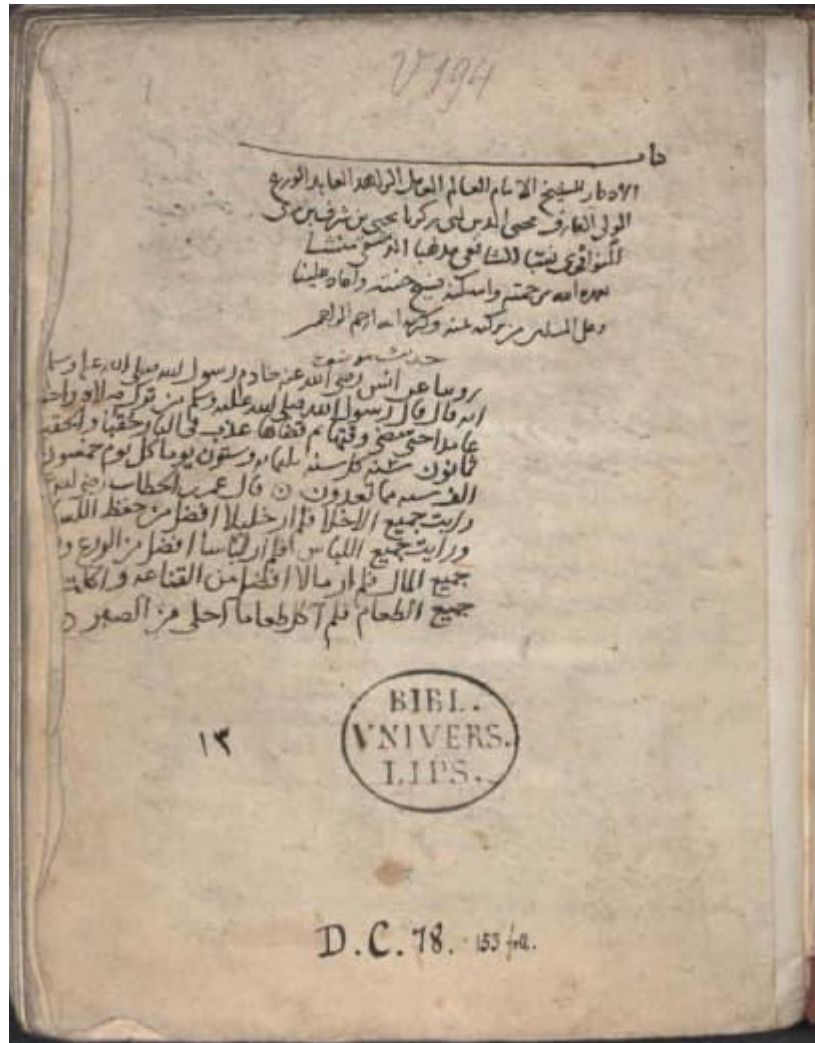 V 194
كتاب
الاذكار للشيخ الامام العالم العامل الزاهد العابد الورع
الولي العارف محيي الدين ابي زكريا يحيى بن شرف بن مرى
النواوي نسبا الشافعي مذهبا الدمشقي منشا
تغمده الله برحمته واسكنه فسيح جنته واعاد علينا
وعلى المسلمين من بركته بمنه وكرمه انه ارحم الراحمين
حديث موضوع
روينا عن انس رضي الله عنه خادم رسول الله صلى الله عليه وسلم
انه قال قال رسول الله صلى الله عليه وسلم من ترك صلاة واحدة
عامدا حتى مضى وقتها ثم قضاها عذب في النار حقبا والحقب
ثمانون سنة كل سنة ثلثمائة وستون يوما كل يوم خمسون
الف سنه مما تعدون قال عمر بن الخطاب رضي الله
رايت جميع الاخلا فلم ار خليلا افضل من حفظ اللسان
ورايت جميع اللباس فلم ار لباسا افضل من الورع و
جميع المال فلم ار مالا افضل من القناعه واكلت
جميع الطعام فلم آكل طعاما احلى من الصبر
BIBL.
VNIVERS.
LIPS.
١٣
D.C. 78. 153 foll.